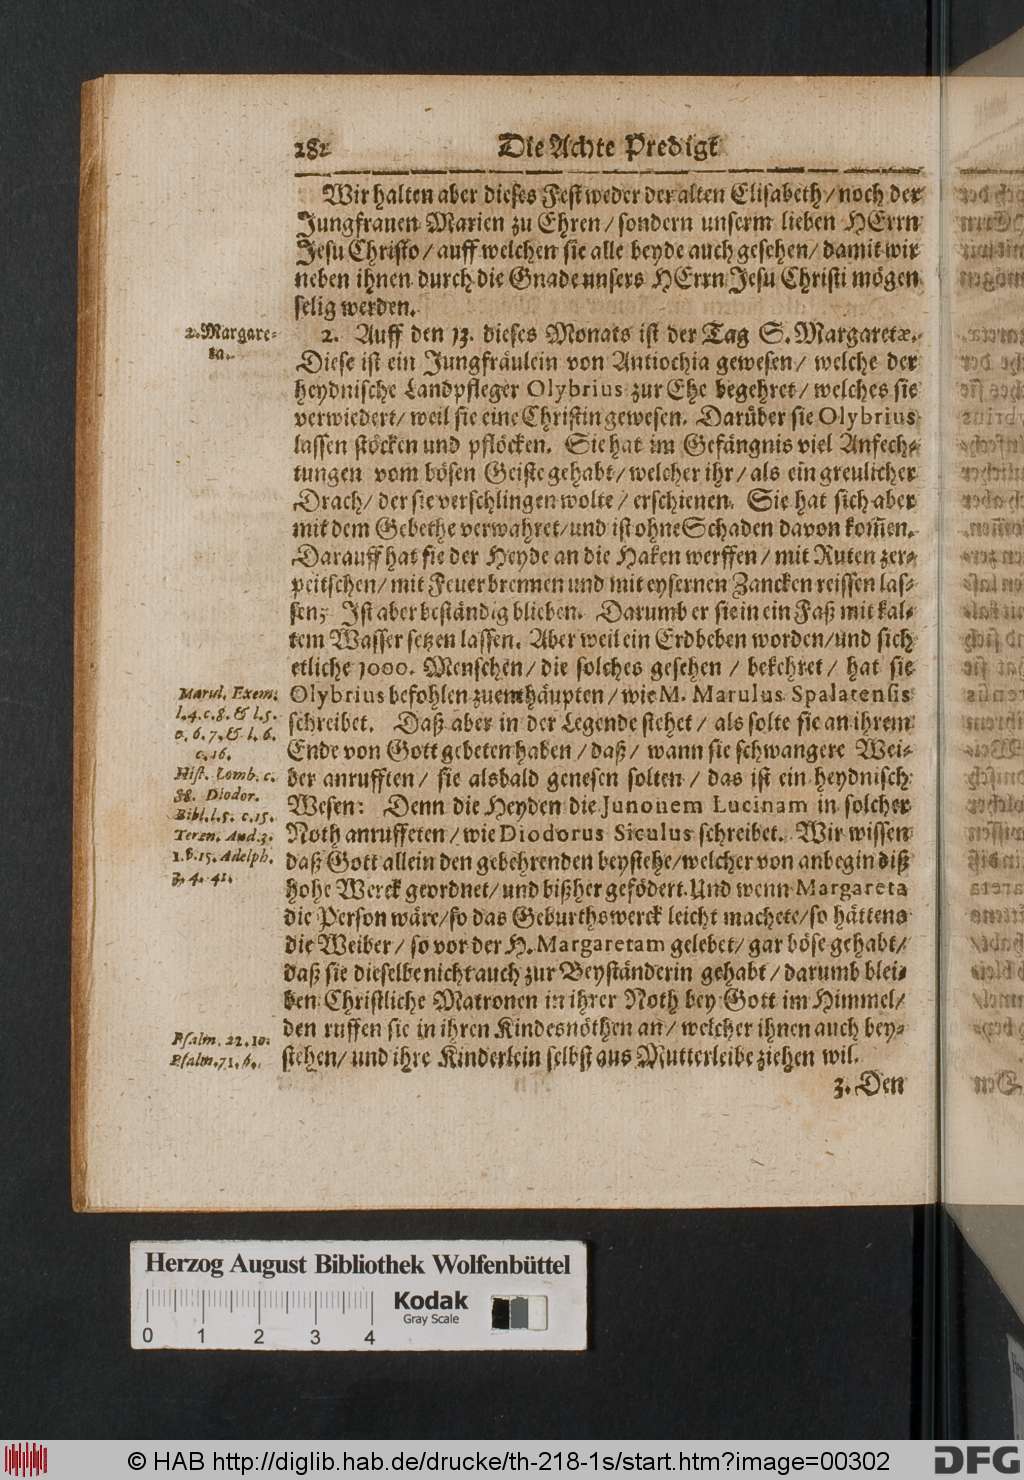 282 Die Achte Predigt
Wir halten aber dieses Fest weder der alten Elisabeth / noch der
Jungfrauen Marien zu Ehren / sondern unserm lieben HErrn
Jesu Christo / auff welchen sie alle beyde auch gesehen / damit wir
neben ihnen durch die Gnade unsers HErrn Jesu Christi mögen
selig werden.
2. Margare-
ta.
2. Auff den 13. dieses Monats ist der Tag S. Margaretæ.
Diese ist ein Jungfräulein von Antiochia gewesen / welche der
heydnische Landpfleger Olybrius zur Ehe begehret / welches sie
verwiedert / weil sie eine Christin gewesen. Darüber sie Olybrius
lassen stöcken und pflöcken. Sie hat im Gefängnis viel Anfech-
tungen vom bösen Geiste gehabt / welcher ihr / als ein greulicher
Drach / der sie verschlingen wolte / erschienen. Sie hat sich aber
mit dem Gebethe verwahret / und ist ohne Schaden davon kom̃en.
Darauff hat sie der Heyde an die Haken werffen / mit Ruten zer-
peitschen / mit Feuer brennen und mit eysernen Zancken reissen las-
sen; Ist aber beständig blieben. Darumb er sie in ein Faß mit kal-
tem Wasser setzen lassen. Aber weil ein Erdbeben worden / und sich
etliche 1000. Menschen / die solches gesehen / bekehret / hat sie
Olybrius befohlen zuenthäupten / wie M. Marulus Spalatensis
schreibet. Daß aber in der Legende stehet / als solte sie an ihrem
Ende von Gott gebeten haben / daß / wann sie schwangere Wei-
ber anrufften / sie alsbald genesen solten / das ist ein heydnisch
Wesen: Denn die Heyden die Junonem Lucinam in solcher
Noth anruffeten / wie Diodorus Siculus schreibet. Wir wissen
daß Gott allein den gebehrenden beystehe / welcher von anbegin diß
hohe Werck geordnet / und bißher gefödert. Und wenn Margareta
die Person wäre / so das Geburthswerck leicht machete / so hättens
die Weiber / so vor der H. Margaretam gelebet / gar böse gehabt /
daß sie dieselbe nicht auch zur Beyständerin gehabt / darumb blei-
ben Christliche Matronen in ihrer Noth bey Gott im Himmel /
den ruffen sie in ihren Kindesnöthen an / welcher ihnen auch bey-
stehen / und ihre Kinderlein selbst aus Mutterleibe ziehen wil.
Marul. Exem.
l. 4. c. 8. & l. 5.
c. 6. 7. & l. 6.
c. 16.
Hist. Lomb. c.
38. Diodor.
Bibl. l. 5. c. 15.
Teren. And. 3.
1. v. 15. Adelph.
3. 4. 41.
Psalm. 22. 10.
Psalm. 71. 6.
3. Den
Herzog August Bibliothek Wolfenbüttel
0 1 2 3 4
Kodak
Gray Scale
© HAB http://diglib.hab.de/drucke/th-218-1s/start.htm?image=00302
DFG